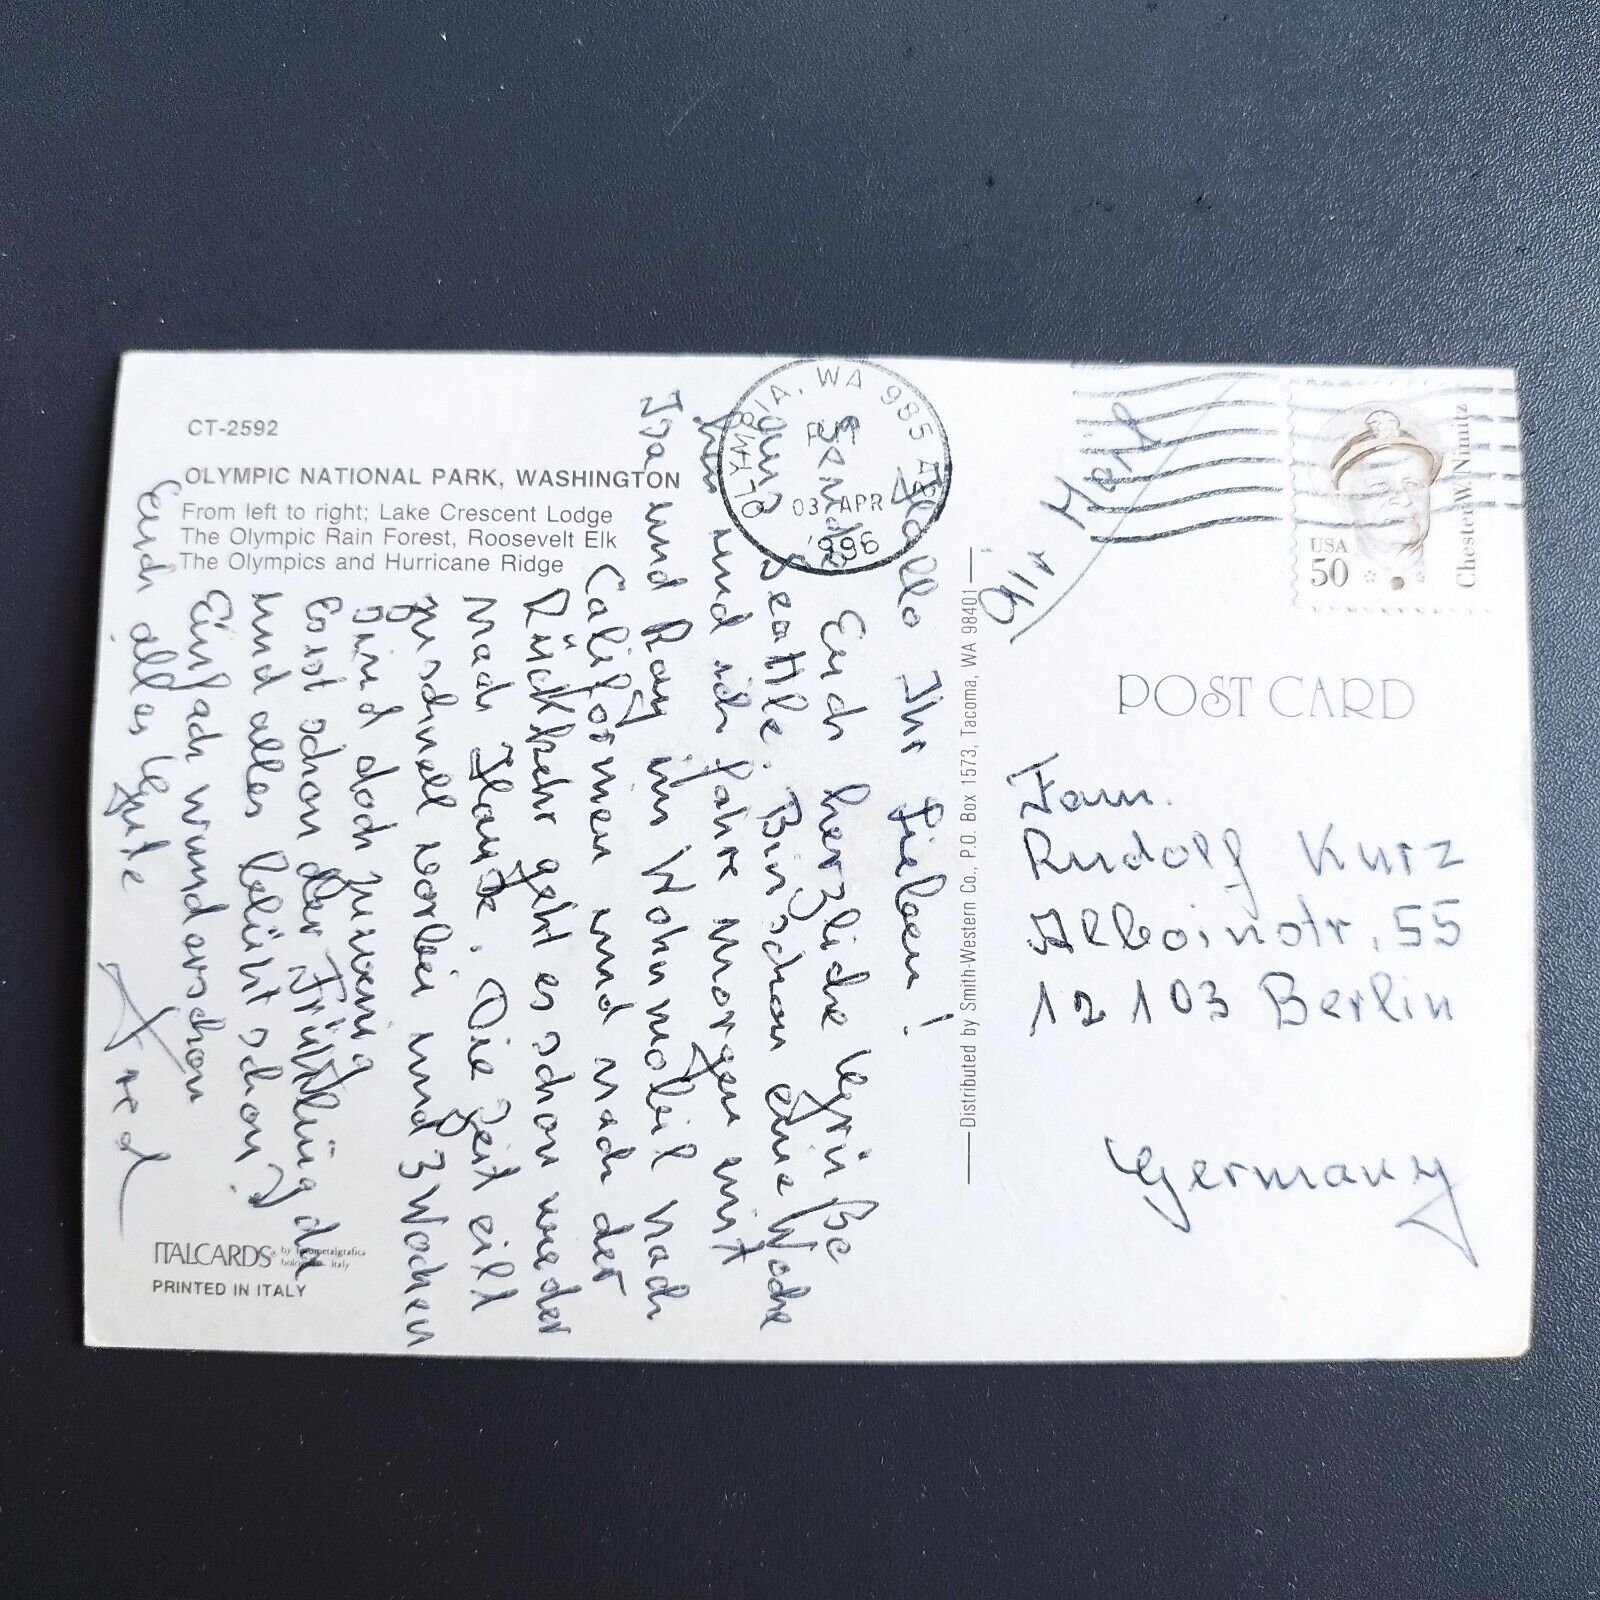 CT-2592
OLYMPIC NATIONAL PARK, WASHINGTON
From left to right; Lake Crescent Lodge
The Olympic Rain Forest, Roosevelt Elk
The Olympics and Hurricane Ridge
Hallo Ihr Lieben!
Sende Euch herzliche Grüße
aus Seattle. Bin schon eine Woche
hier und ich fahre morgen mit
Iva und Ray im Wohnmobil nach
Californien und nach der
Rückkehr geht es schon wieder
nach Hause. Die Zeit eilt
zu schnell vorbei und 3 Wochen
sind doch zu wenig
Es ist schon der Frühling da
und alles blüht schon.
Einfach wunderschön
Euch alles Gute
Fred
ITALCARDS
PRINTED IN ITALY
Distributed by Smith-Western Co., P.O. Box 1573, Tacoma, WA 98401
OLYMPIA, WA 985
03 APR
1996
Air Mail
USA
50
Chester W. Nimitz
POST CARD
Fam.
Rudolf Kurz
Alboinstr. 55
12103 Berlin
Germany